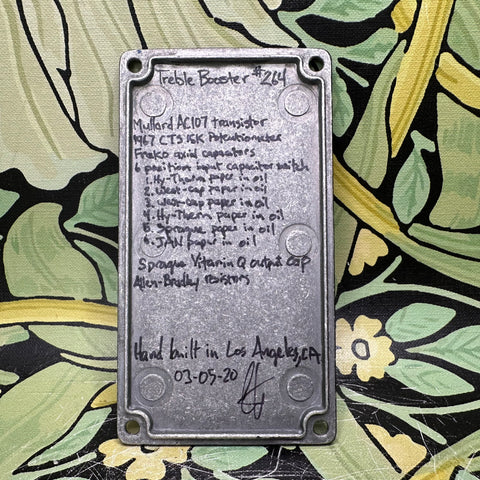 Treble Booster #264
Mullard AC107 transistor
1967 CTS 15K Potentiometer
Frako axial capacitors
6 position input capacitor switch
1. Hy-Therm paper in oil
2. West-cap paper in oil
3. West-cap paper in oil
4. Hy-Therm paper in oil
5. Sprague paper in oil
6. JAN paper in oil
Sprague Vitamin Q output cap
Allen-Bradley resistors
Hand built in Los Angeles, CA
03-05-20